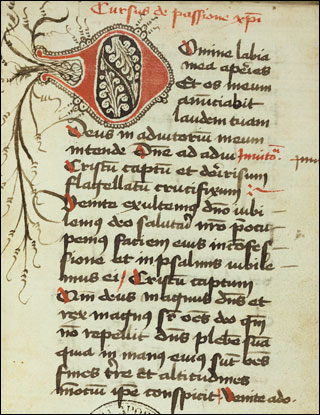 Cursus de passione xpi
Domine labia
mea aperies
Et os meum
anuciabit
laudem tuam
Deus in adiutoriū meum
intende Dne ad adiu Inuito
Cristū captū et derisum
flagellatū crucifixum
Venite exultemus dno iubi
lemus deo salutari nro preoccu
pemus faciem eius in cōfes
sione et in psalmis iubile
mus ei Cristū captum
Qm̄ deus magnus dns et
rex magnus sr̄ oēs deo qm̄
no repellit dns plebē suā
quia in manu eius sūt oēs
fines t're et altitudines
montiū ipe conspicit Venite ado